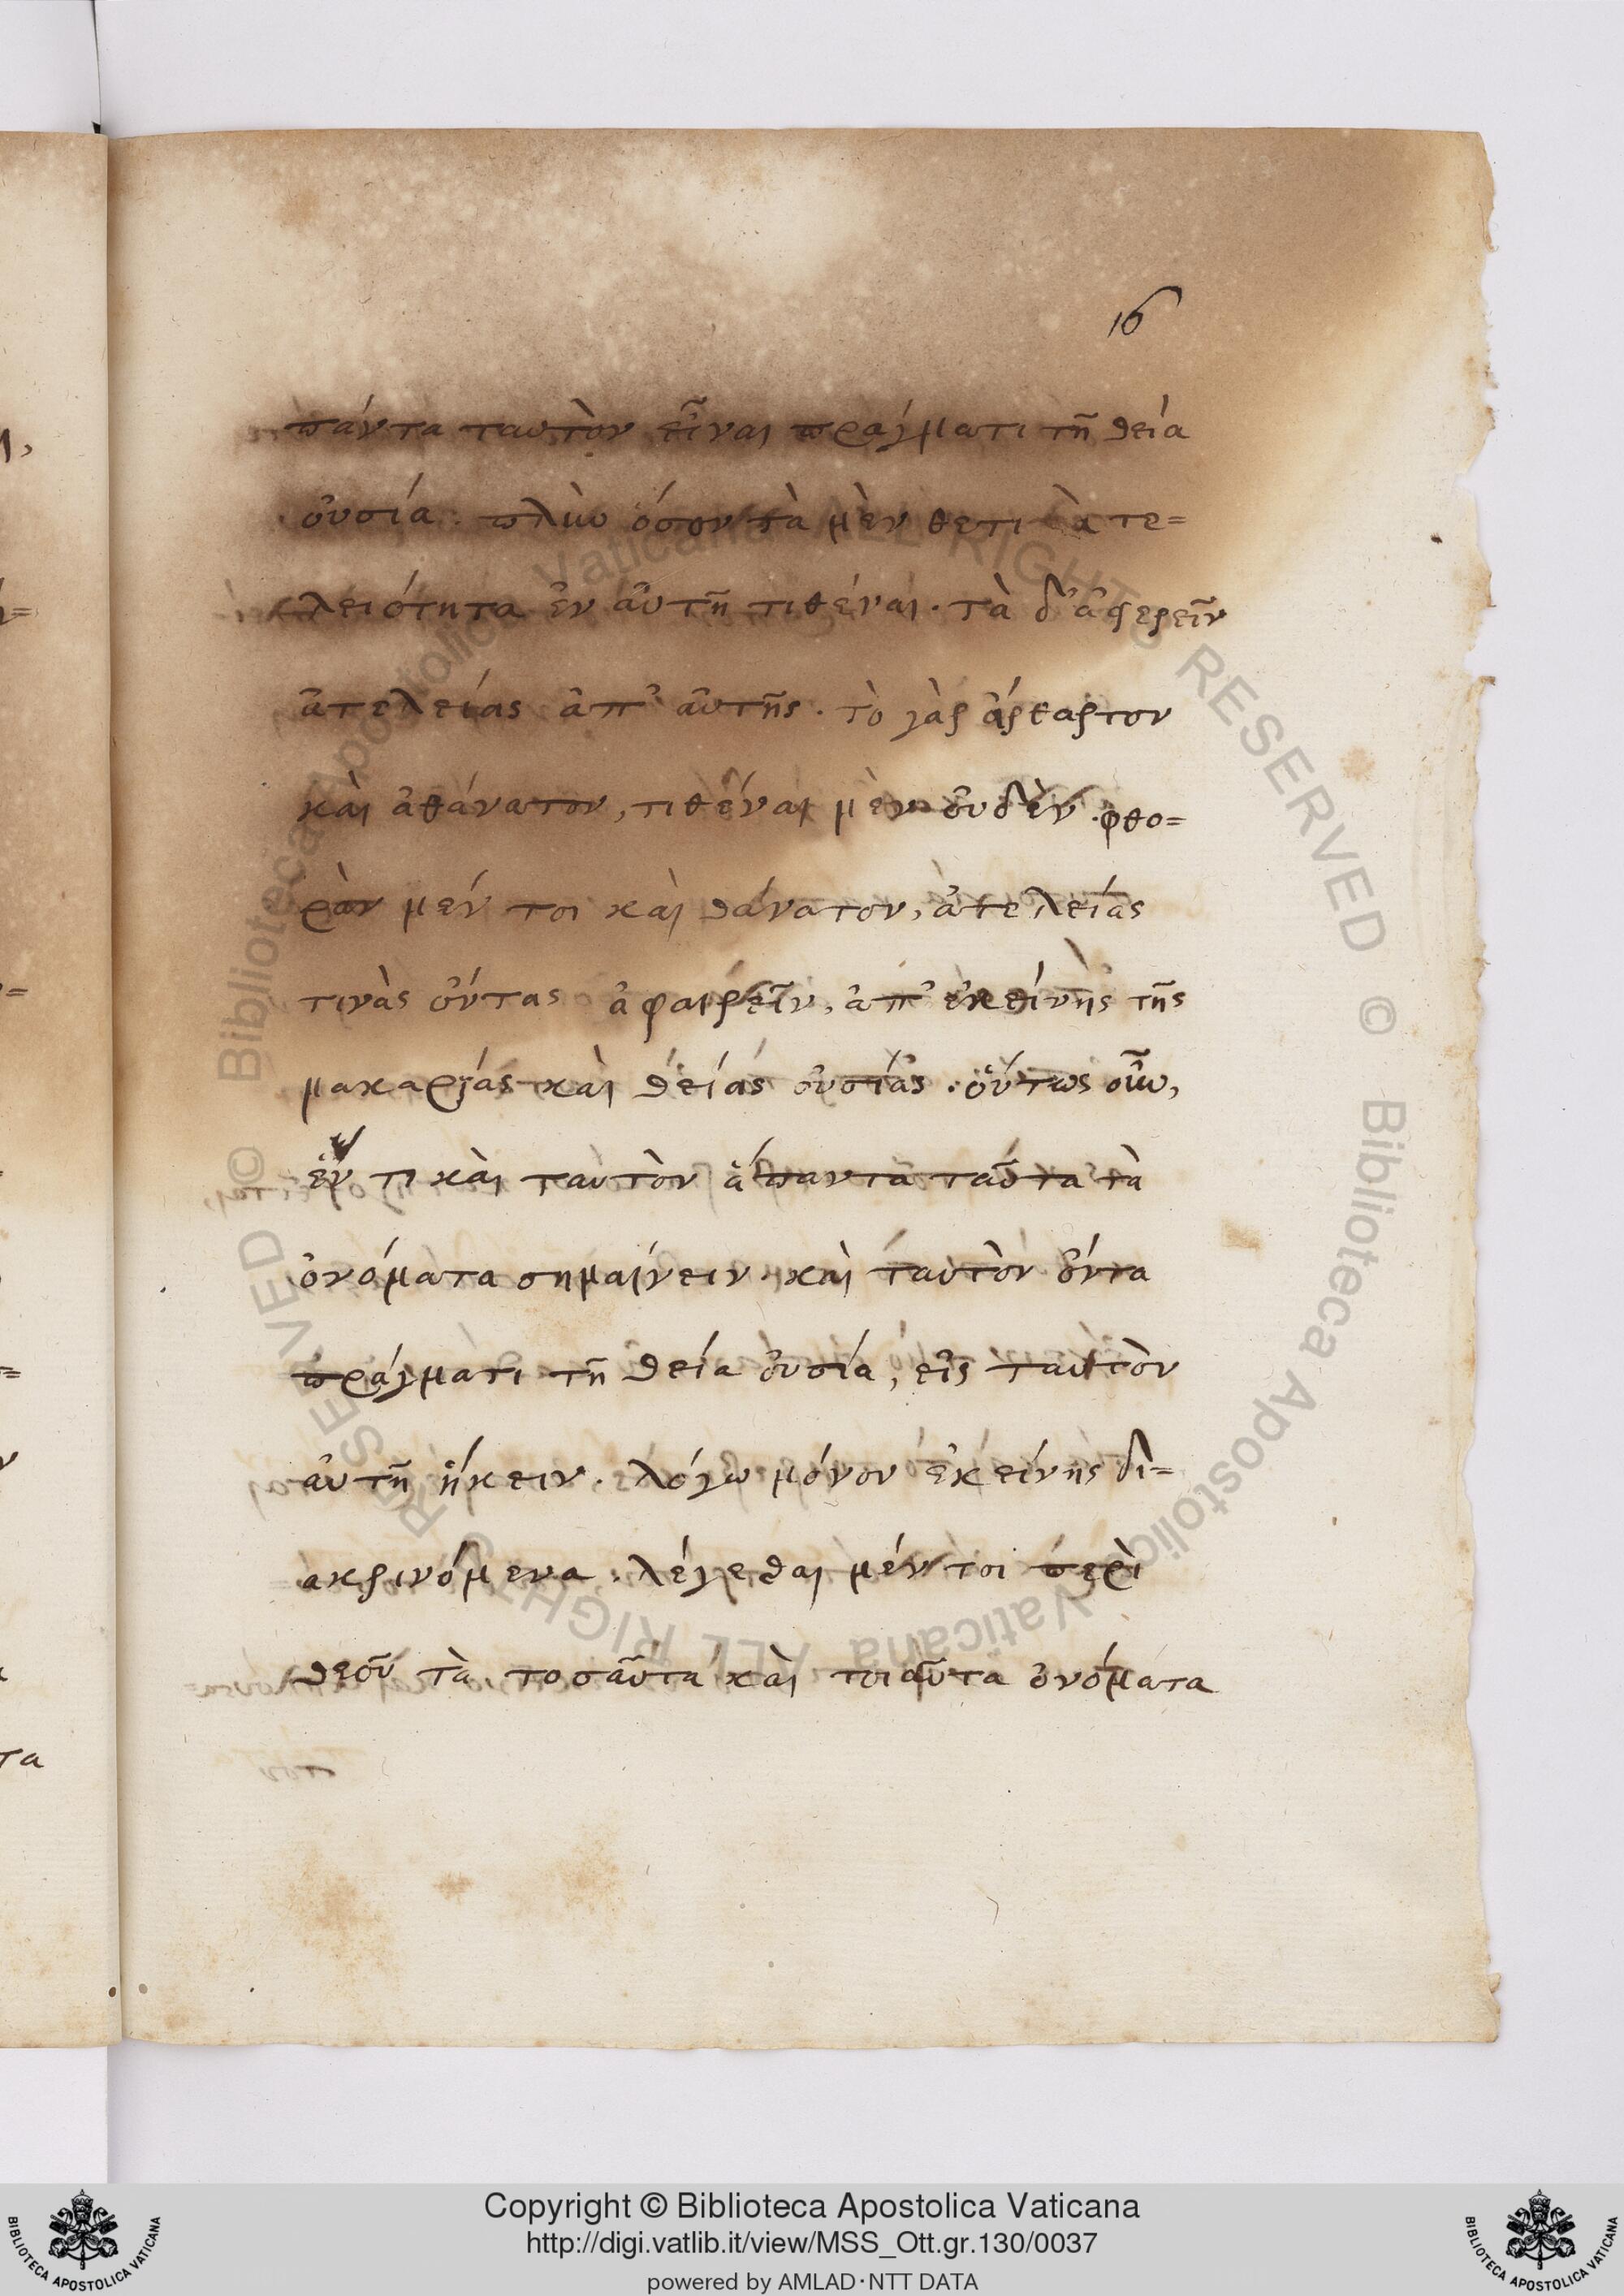 16
πάντα ταυτὸν εἶναι πράγματι τῆ θεία
οὐσία. πλὴν ὅσον τὰ μὲν θετικὰ τε=
λειότητα ἐν αὐτῆ τιθέναι. τὰ δ' ἀφερεῖν
ἀτελείας ἀπ' αὐτῆς. τὸ γὰρ ἄφθαρτον
καὶ ἀθάνατον, τιθέναι μὲν οὐδὲν. φθο=
ρὰν μέν τοι καὶ θάνατον, ἀτελείας
τινὰς ὄντας ἀφαιρεῖν, ἀπ' ἐκείνης τῆς
μακαρίας καὶ θείας οὐσίας. οὕτως οὖν,
ἕν τι καὶ ταυτὸν ἅπαντα ταῦτα τὰ
ὀνόματα σημαίνειν. καὶ ταυτὸν ὄντα
πράγματι τῆ θεία οὐσία, εἰς ταυτὸν
αὐτῆ ἥκειν. λόγω μόνον ἐκείνης δι=
ακρινόμενα. λέγεσθαι μέν τοι περὶ
θεοῦ τὰ τοσαῦτα καὶ τοιαῦτα ὀνόματα
© Biblioteca Apostolica Vaticana ALL RIGHTS RESERVED © Biblioteca Apostolica Vaticana ALL RIGHTS RESERVED
Copyright © Biblioteca Apostolica Vaticana
http://digi.vatlib.it/view/MSS_Ott.gr.130/0037
powered by AMLAD·NTT DATA
BIBLIOTECA APOSTOLICA VATICANA
BIBLIOTECA APOSTOLICA VATICANA